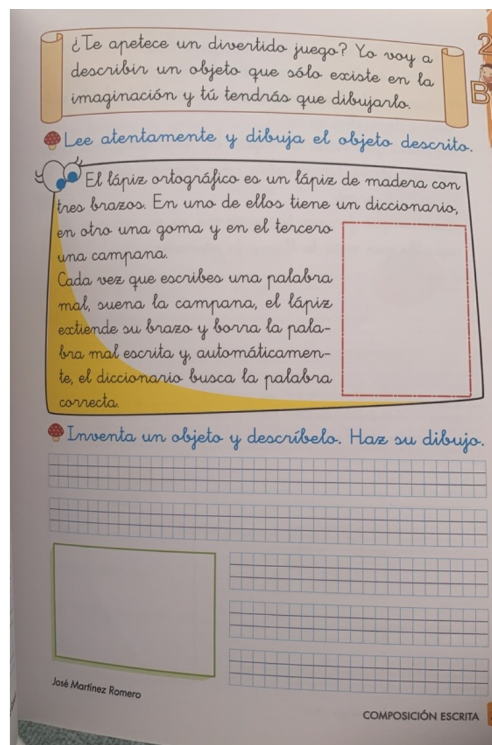 ¿Te apetece un divertido juego? Yo voy a
describir un objeto que sólo existe en la
imaginación y tú tendrás que dibujarlo.
2
B
Lee atentamente y dibuja el objeto descrito.
El lápiz ortográfico es un lápiz de madera con
tres brazos. En uno de ellos tiene un diccionario,
en otro una goma y en el tercero
una campana.
Cada vez que escribes una palabra
mal, suena la campana, el lápiz
extiende su brazo y borra la pala-
bra mal escrita y, automáticamen-
te, el diccionario busca la palabra
correcta.
Inventa un objeto y descríbelo. Haz su dibujo.
José Martínez Romero
COMPOSICIÓN ESCRITA